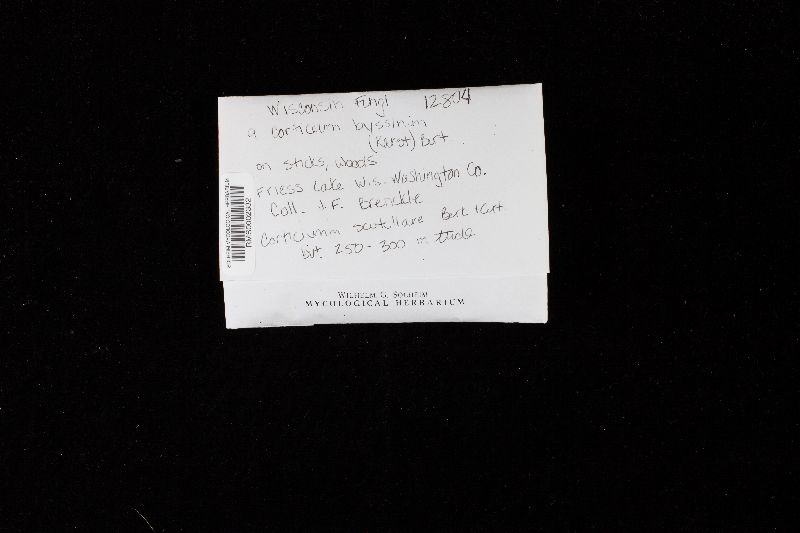 Wisconsin Fungi 12804
a corticium byssinum
(Karst) Burt
on sticks, woods
Friess Lake Wis. Washington Co.
Coll. J.F. Brenckle
Corticiumm scutillare Berk. + Curt
but 250-300 m thick
WILHELM G. SOLHEIM
MYCOLOGICAL HERBARIUM